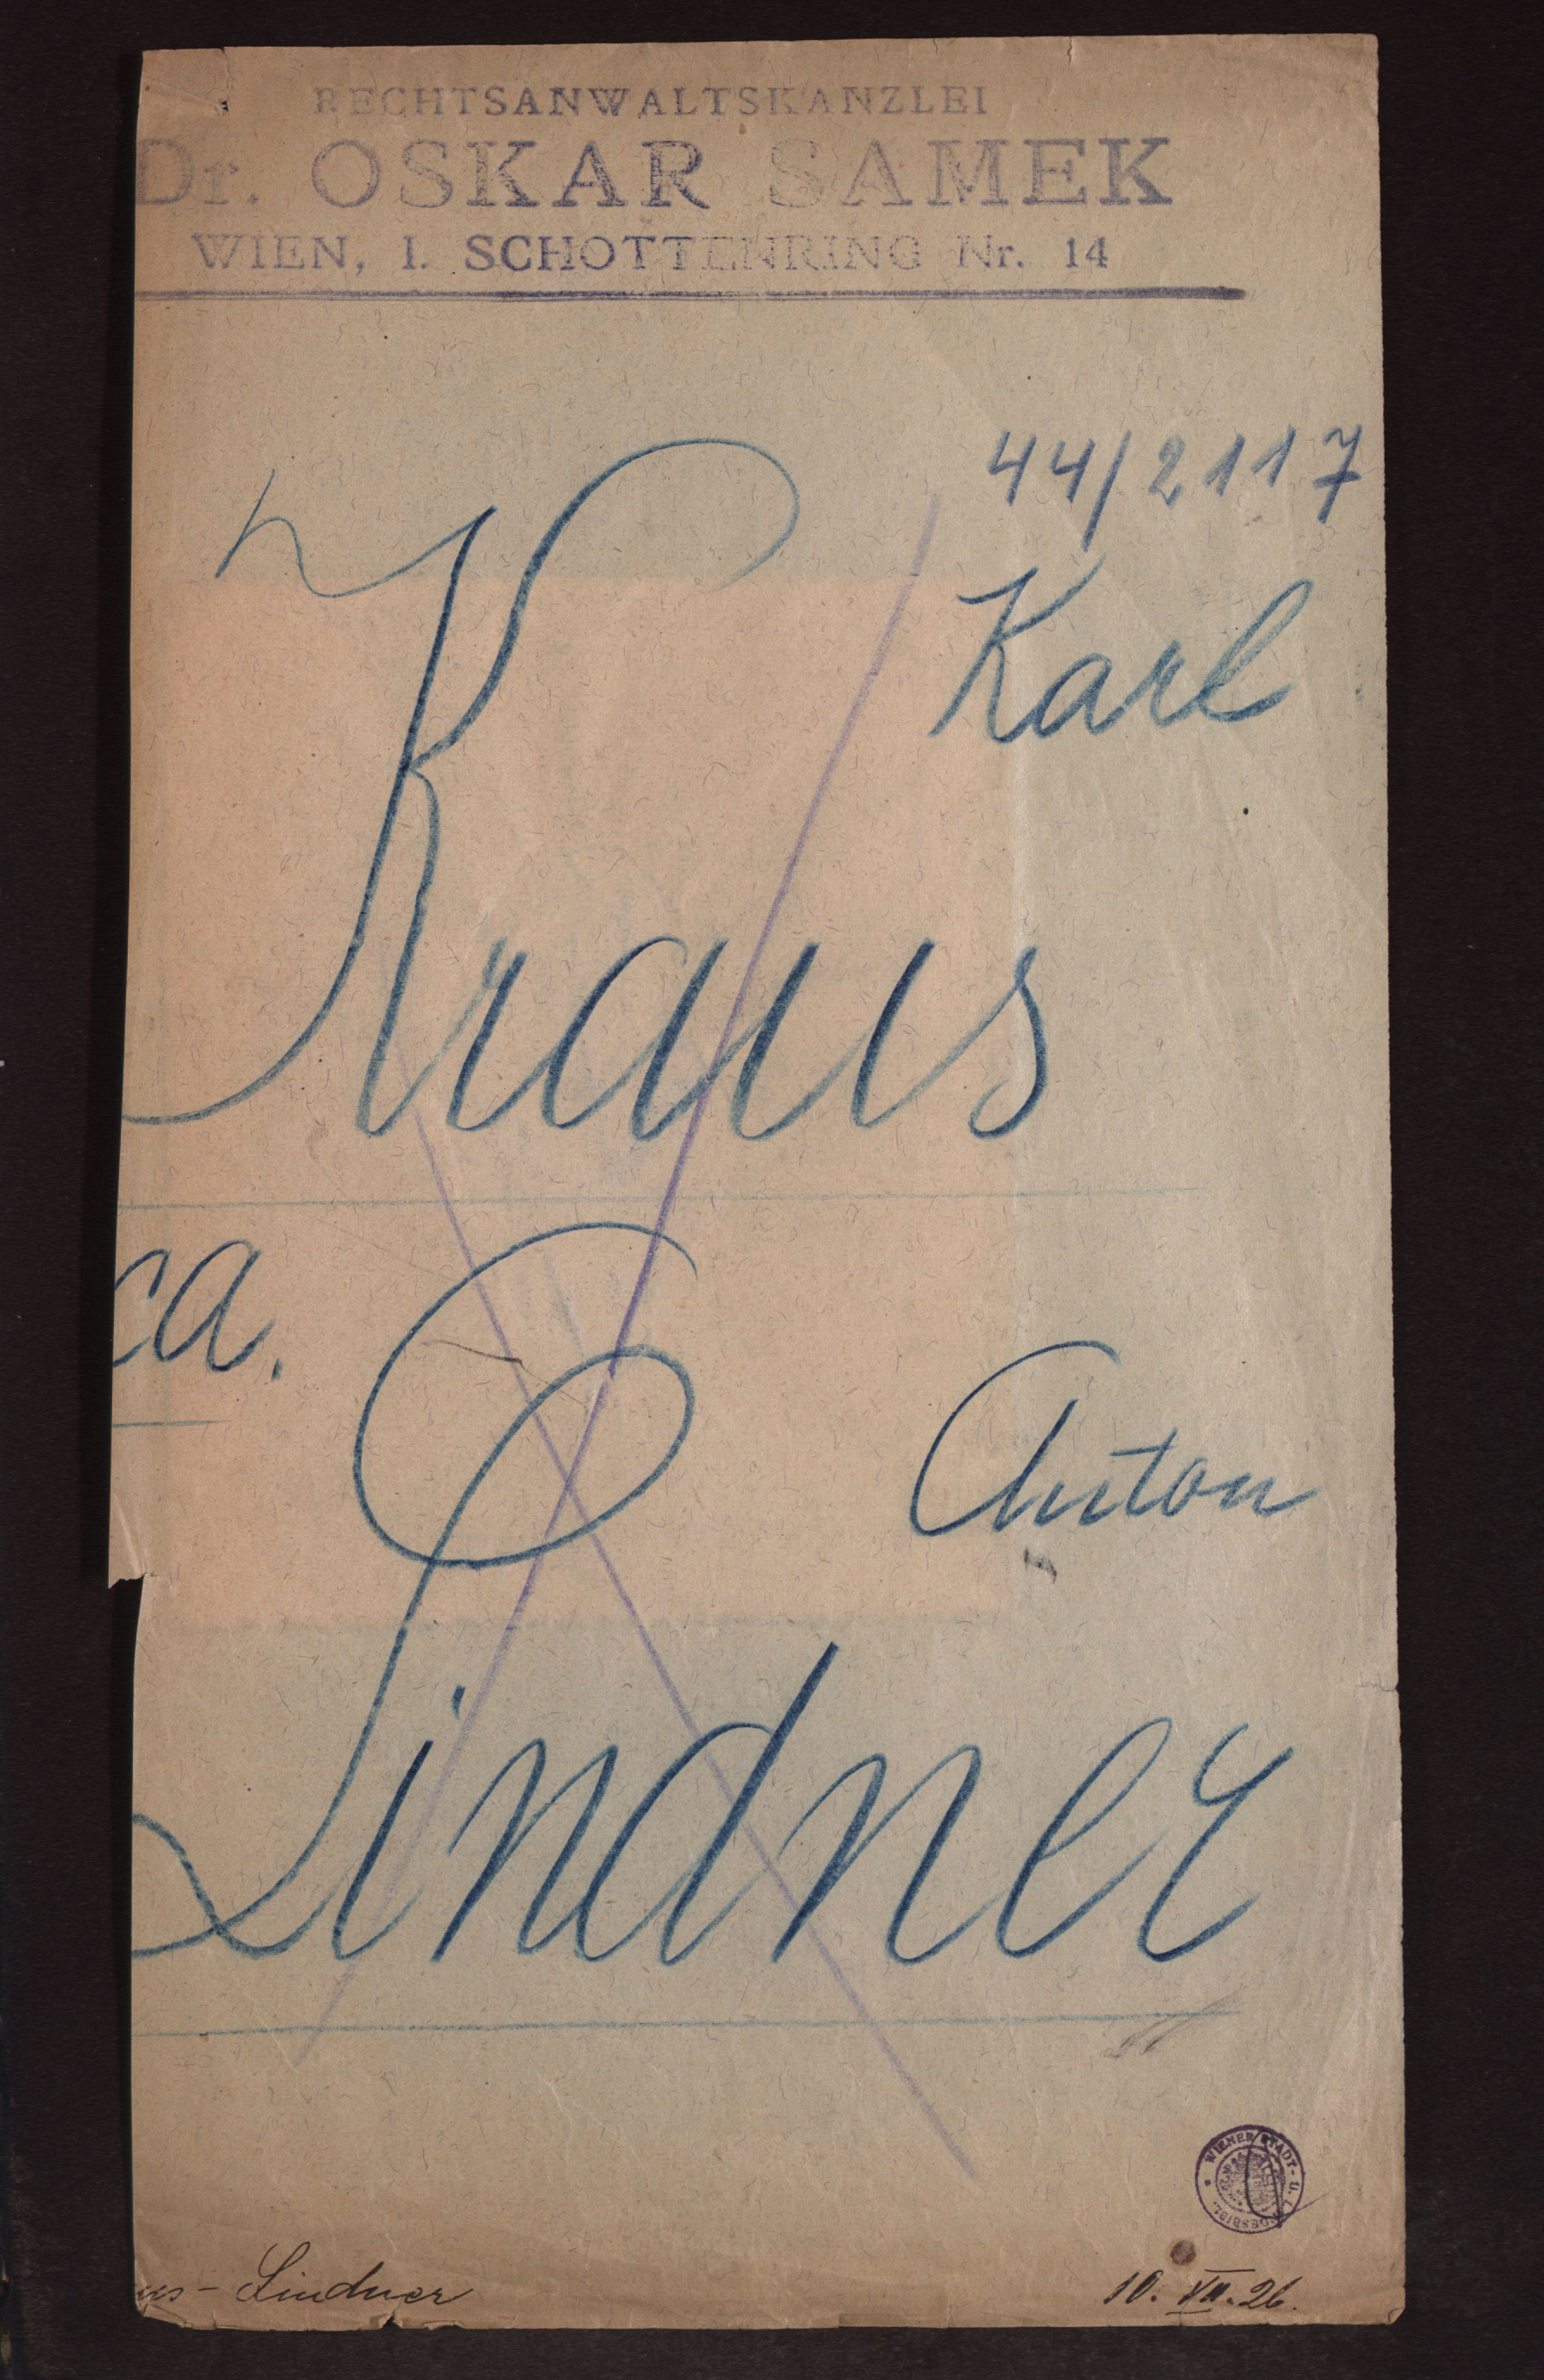 RECHTSANWALTSKANZLEI
Dr. OSKAR SAMEK
WIEN, I. SCHOTTENRING Nr. 14
44/2117
Karl
Kraus
ca.
Anton
Lindner
WIENER STADT- U. LANDESBIBL.
us - Lindner
10. VII. 26.